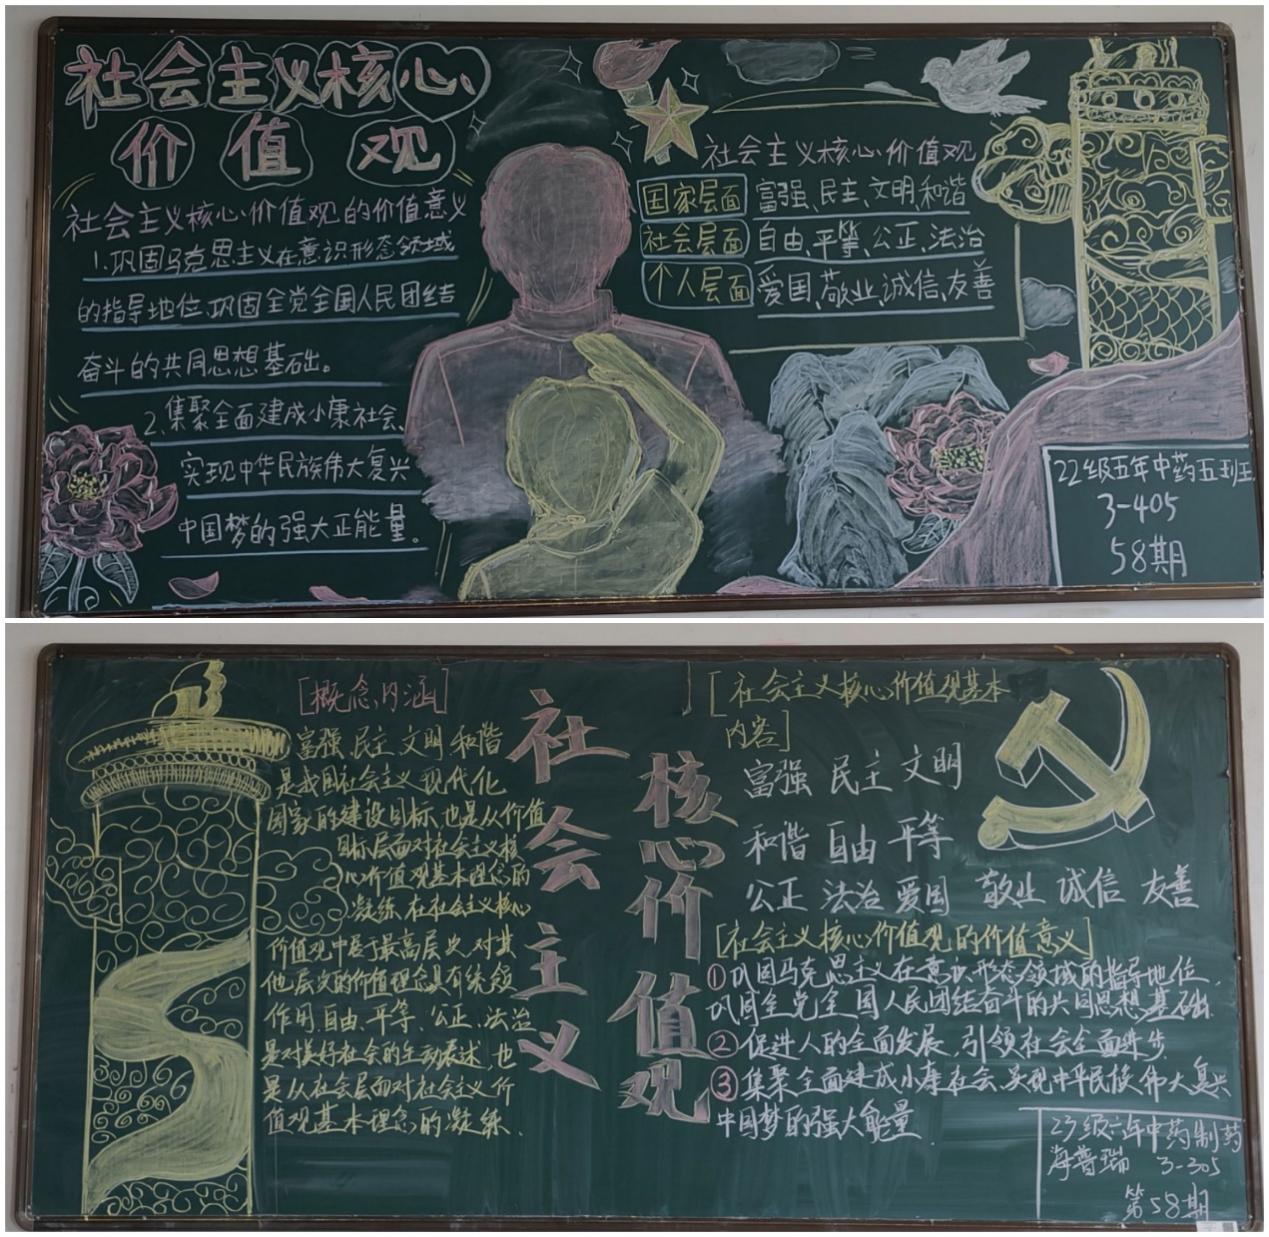 社会主义核心
价值观
社会主义核心价值观的价值意义
1.巩固马克思主义在意识形态领域
的指导地位、巩固全党全国人民团结
奋斗的共同思想基础。
2.集聚全面建成小康社会、
实现中华民族伟大复兴
中国梦的强大正能量。
社会主义核心价值观
国家层面 富强、民主、文明、和谐
社会层面 自由、平等、公正、法治
个人层面 爱国、敬业、诚信、友善
22级五年中药五班
3-405
58期
[概念内涵]
富强 民主 文明 和谐
是我国社会主义现代化
国家的建设目标,也是从价值
目标层面对社会主义核
心价值观基本理念的
凝练,在社会主义核心
价值观中居于最高层次,对其
他层次的价值理念具有统领
作用,自由、平等、公正、法治
是对美好社会的生动表述,也
是从社会层面对社会主义价
值观基本理念的凝练.
社会主义
核心价值观
[社会主义核心价值观基本
内容]
富强 民主 文明
和谐 自由 平等
公正 法治 爱国 敬业 诚信 友善
[社会主义核心价值观的价值意义]
①巩固马克思主义在意识形态领域的指导地位,
巩固全党全国人民团结奋斗的共同思想基础.
②促进人的全面发展,引领社会全面进步.
③集聚全面建成小康社会、实现中华民族伟大复兴
中国梦的强大能量.
23级六年中药制药
海普瑞 3-305
第58期